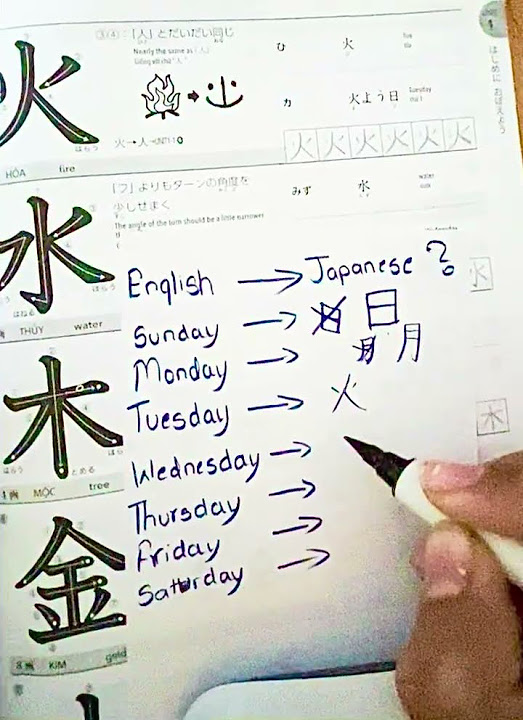 ③④:「人」とだいだい同じ
Nearly the same as 「人」
ひ 火
はじめに おぼえよう
1
火
カ 火よう日 Tuesday
火→人
はらう
火 火 火 火 火 火
HỎA fire
「フ」よりもターンの角度を
少しせまく
The angle of the turn should be a little narrower
みず 水 water
水
はねる はらう
水
THỦY water
English → Japanese ?
Sunday → 日
Monday → 月
Tuesday → 火
Wednesday →
Thursday →
Friday →
Saturday →
木
はらう とめる
木
4画 MỘC tree
金
8画 KIM gold